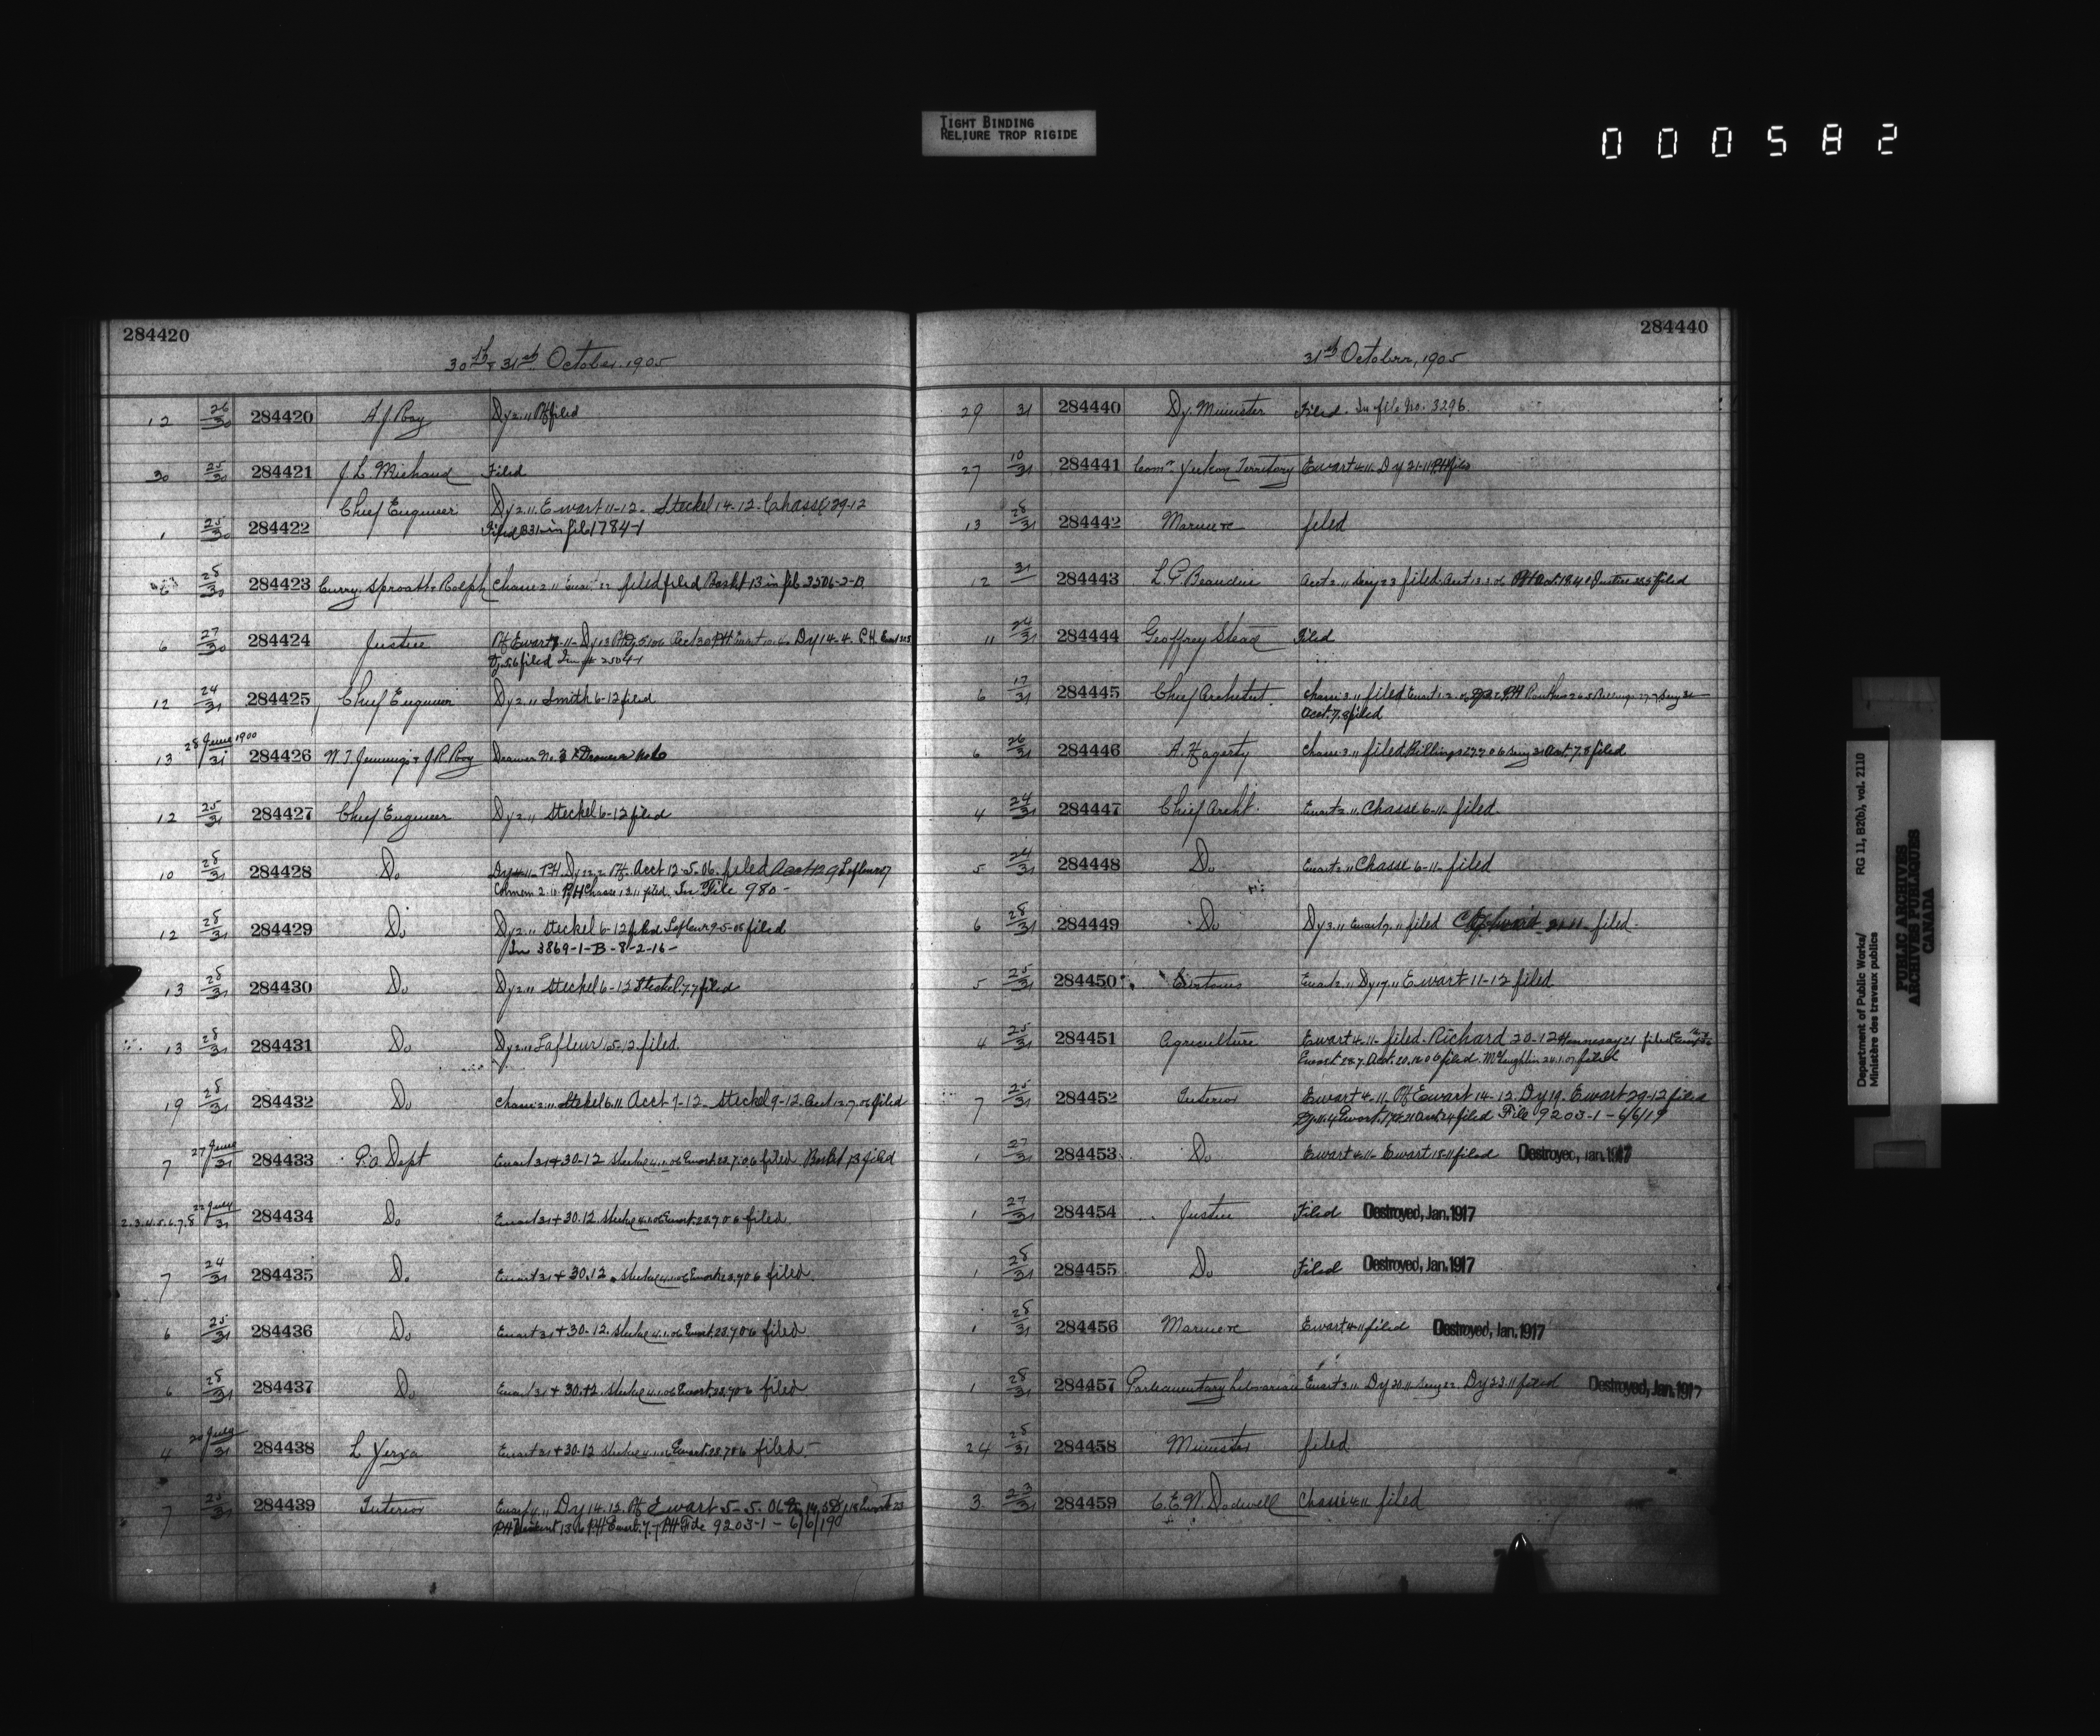 TIGHT BINDING
RELIURE TROP RIGIDE
0 0 0 5 8 2
284420
30th & 31st October, 1905
12 26/30 284420 A. J. Roy Dy 2.11 filed
30 25/30 284421 J. L. Michaud Filed
1 25/30 284422 Chief Engineer Dy 2.11. Ewart 11-12. Steckel 14-12. Chassé 29-12
in file 1784-1
28/30 284423 Curry, Sproatt & Rolph Chassé 2.11 filed filed Basket 13 in file 2506-2-B
6 27/30 284424 Justice Dy 14-4. P.H.
filed
12 24/31 284425 Chief Engineer Dy 2.11 Smith 6-12 filed
13 28 June 1900/31 284426 W. T. Jennings & J. R. Roy Drawer No. 3
12 25/31 284427 Chief Engineer Dy 2.11 Steckel 6-12 filed
10 28/31 284428 Do Acct 12-5-06. filed Lafleur
Chassé 13.11 filed. In File 980-
12 28/31 284429 Do Dy 2.11 Steckel 6-12 filed Lafleur 9-5-05 filed
In 3869-1-B-8-2-16-
13 28/31 284430 Do Dy 2.11 Steckel 6-12 Steckel 7.7 filed
13 28/31 284431 Do Dy 2.11 Lafleur 15-12 filed.
19 28/31 284432 Do Chassé 2.11 Steckel 6.11 Acct 7-12. Steckel 9-12. Acct 12-7-06 filed
7 27 June/31 284433 P.O. Dept Ewart 31 + 30-12 Steckel 4.1.06 Ewart 28.7.06 filed. Basket 13 filed
2.3.4.5.6.7.8 22 July/31 284434 Do Ewart 31 + 30.12. Steckel 4.1.06 Ewart 28.7.06 filed.
7 24/31 284435 Do Ewart 31 + 30.12. Steckel 4.1.06 Ewart 28.7.06 filed.
6 25/31 284436 Do Ewart 31 + 30-12. Steckel 4.1.06 Ewart 28.7.06 filed
6 28/31 284437 Do Ewart 31 + 30.12. Steckel 4.1.06 Ewart 28.7.06 filed
4 20 July/31 284438 L Yerxa Ewart 31 + 30-12 Steckel 4.1.06 Ewart 28.7.06 filed -
7 25/31 284439 Interior Ewart 4.11 Dy 14.12. Ewart 5-5.06
File 9203-1 - 6/6/19
284440
31st October, 1905
29 31 284440 Dy. Minister Filed. In file No. 3296.
27 10/31 284441 Comr Yukon Territory Ewart 4.11. Dy 21-11 filed
13 28/31 284442 Marine filed
12 31 284443 L. P. Beaudin Acct 2.11 filed. filed
11 24/31 284444 Geoffrey Stead Filed
6 17/31 284445 Chief Architect. Chassé 3.11 filed
Acct. 7.8 filed
6 26/31 284446 A. Hagerty Chassé 3.11 filed Billings 27.7.06 Acct. 7.8 filed
4 24/31 284447 Chief Archt. Ewart 2.11 Chassé 6-11- filed.
5 24/31 284448 Do Ewart 2.11 Chassé 6-11- filed
6 28/31 284449 Do Dy 3.11 Ewart 7.11 filed 21.11- filed.
5 25/31 284450 Customs Ewart 2.11 Dy 17.11 Ewart 11-12 filed.
4 25/31 284451 Agriculture Ewart 4.11- filed. Richard 20-12 Hennessy 21 filed
Ewart 28.7. Acct. filed. McLaughlin 24.1.07 filed
7 25/31 284452 Interior Ewart 4.11. Ewart 14-12. Dy 19. Ewart 29-12 filed
filed File 9203-1 - 6/6/19
1 27/31 284453 Do Ewart 4.11- Ewart 18-11 filed Destroyed, Jan. 1917
1 27/31 284454 Justice Filed Destroyed, Jan. 1917
1 28/31 284455 Do Filed Destroyed, Jan. 1917
1 28/31 284456 Marine Ewart 4.11 filed Destroyed, Jan. 1917
1 28/31 284457 Parliamentary Librarian Ewart 3.11. Dy 20.11 Dy 23.11 filed Destroyed, Jan. 1917
24 28/31 284458 Minister filed
3. 23/31 284459 C. E. W. Dodwell Chassé 4.11 filed
Department of Public Works/ RG 11, B2(b), vol. 2110
Ministère des travaux publics
PUBLIC ARCHIVES
ARCHIVES PUBLIQUES
CANADA